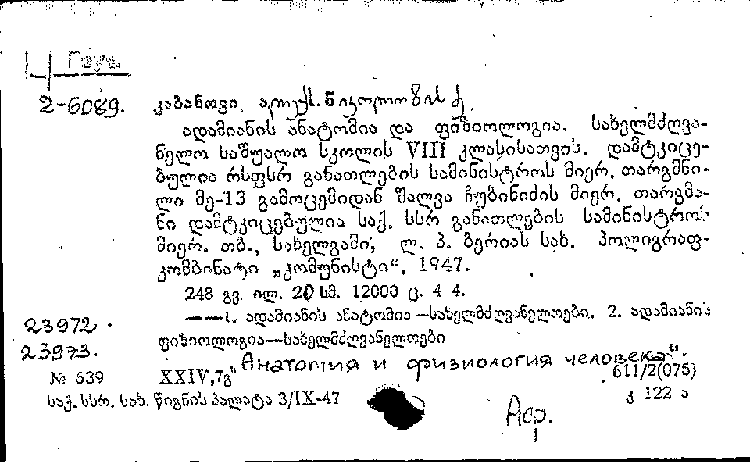 2-6089. კაბანოვი, ალექს. ნიკოლოზის ძე.
ადამიანის ანატომია და ფიზიოლოგია. სახელმძღვა-
ნელო საშუალო სკოლის VIII კლასისათვის. დამტკიცე-
ბულია რსფსრ განათლების სამინისტროს მიერ. თარგმნი-
ლი მე-13 გამოცემიდან შალვა ჩუბინიძის მიერ. თარგმა-
ნი დამტკიცებულია საქ. სსრ განათლების სამინისტროს
მიერ. თბ., სახელგამი, ლ. პ. ბერიას სახ. პოლიგრაფ-
კომბინატი „კომუნისტი“, 1947.
248 გვ. ილ. 20 სმ. 12000 ც. 4 მ.
——1. ადამიანის ანატომია—სახელმძღვანელოები. 2. ადამიანის
23972. ფიზიოლოგია—სახელმძღვანელოები
23973. „Анатомия и физиология человека“.
№ 639 XXIV,7გ 611/2(075)
საქ. სსრ. სახ. წიგნის პალატა 3/IX-47 კ 122 ა